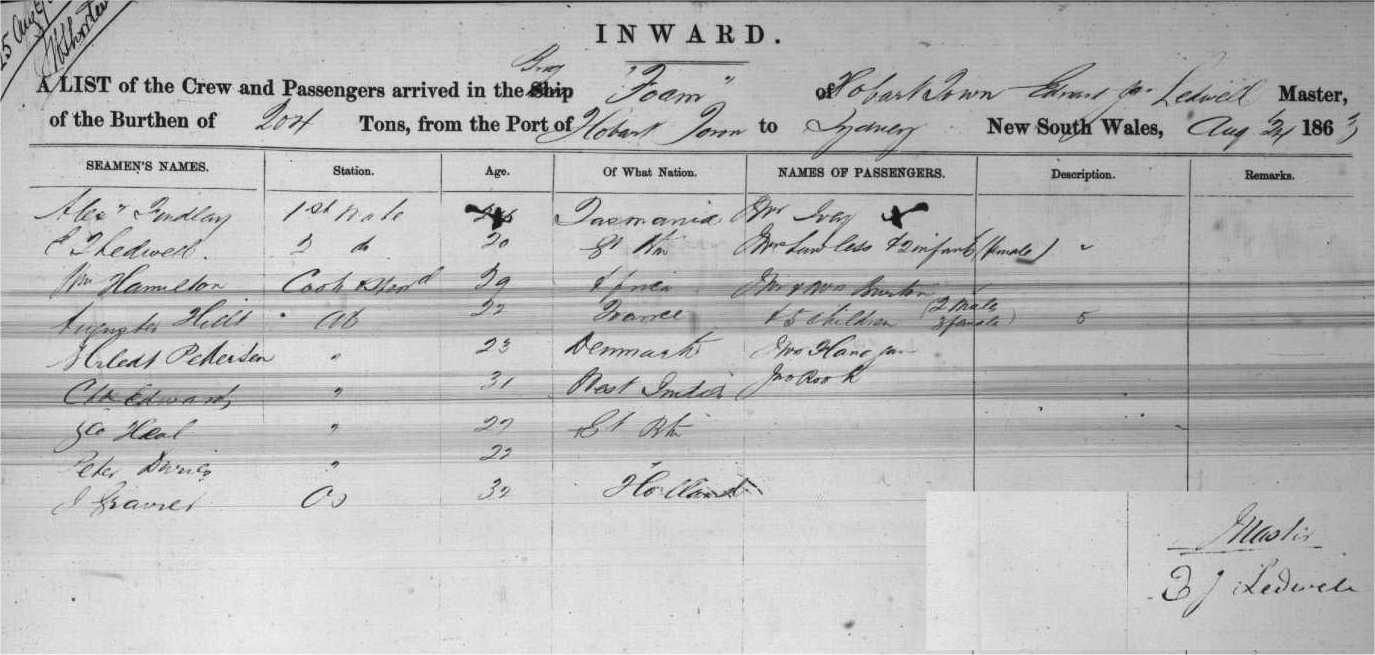 25 Aug
INWARD.
A LIST of the Crew and Passengers arrived in the Ship Brig "Foam" of Hobart Town Ledwell Master,
of the Burthen of 204 Tons, from the Port of Hobart Town to Sydney New South Wales, Aug 24 1863
SEAMEN'S NAMES. Station. Age. Of What Nation. NAMES OF PASSENGERS. Description. Remarks.
Alexr Findlay 1st Mate Tasmania Mr
Ledwell. 2 do 20 Gt Btn Mrs Lawless & 2 infants (female) "
Wm Hamilton Cook & Stewd 29 Africa Mr & Mrs Burton
Hill AB 22 France & 5 children (2 male 3 female) 5
Pedersen " 23 Denmark Mrs Flanagan
Chs Edwards " 31 West Indies Jno Rook
Geo Heal " 22 Gt Btn
Peter " 22 "
J OS 32 Holland
Master
E J Ledwell